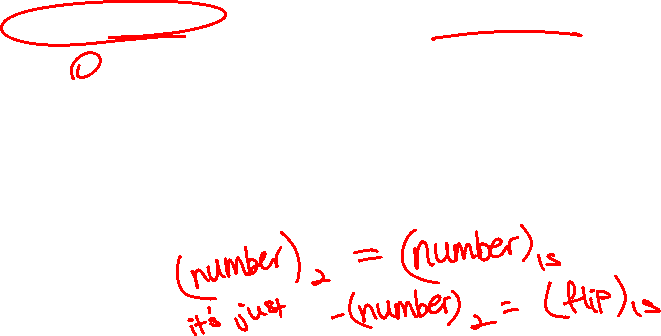 ①
(number)₂ = (number)₁ₛ
it's just -(number)₂ = (flip)₁ₛ